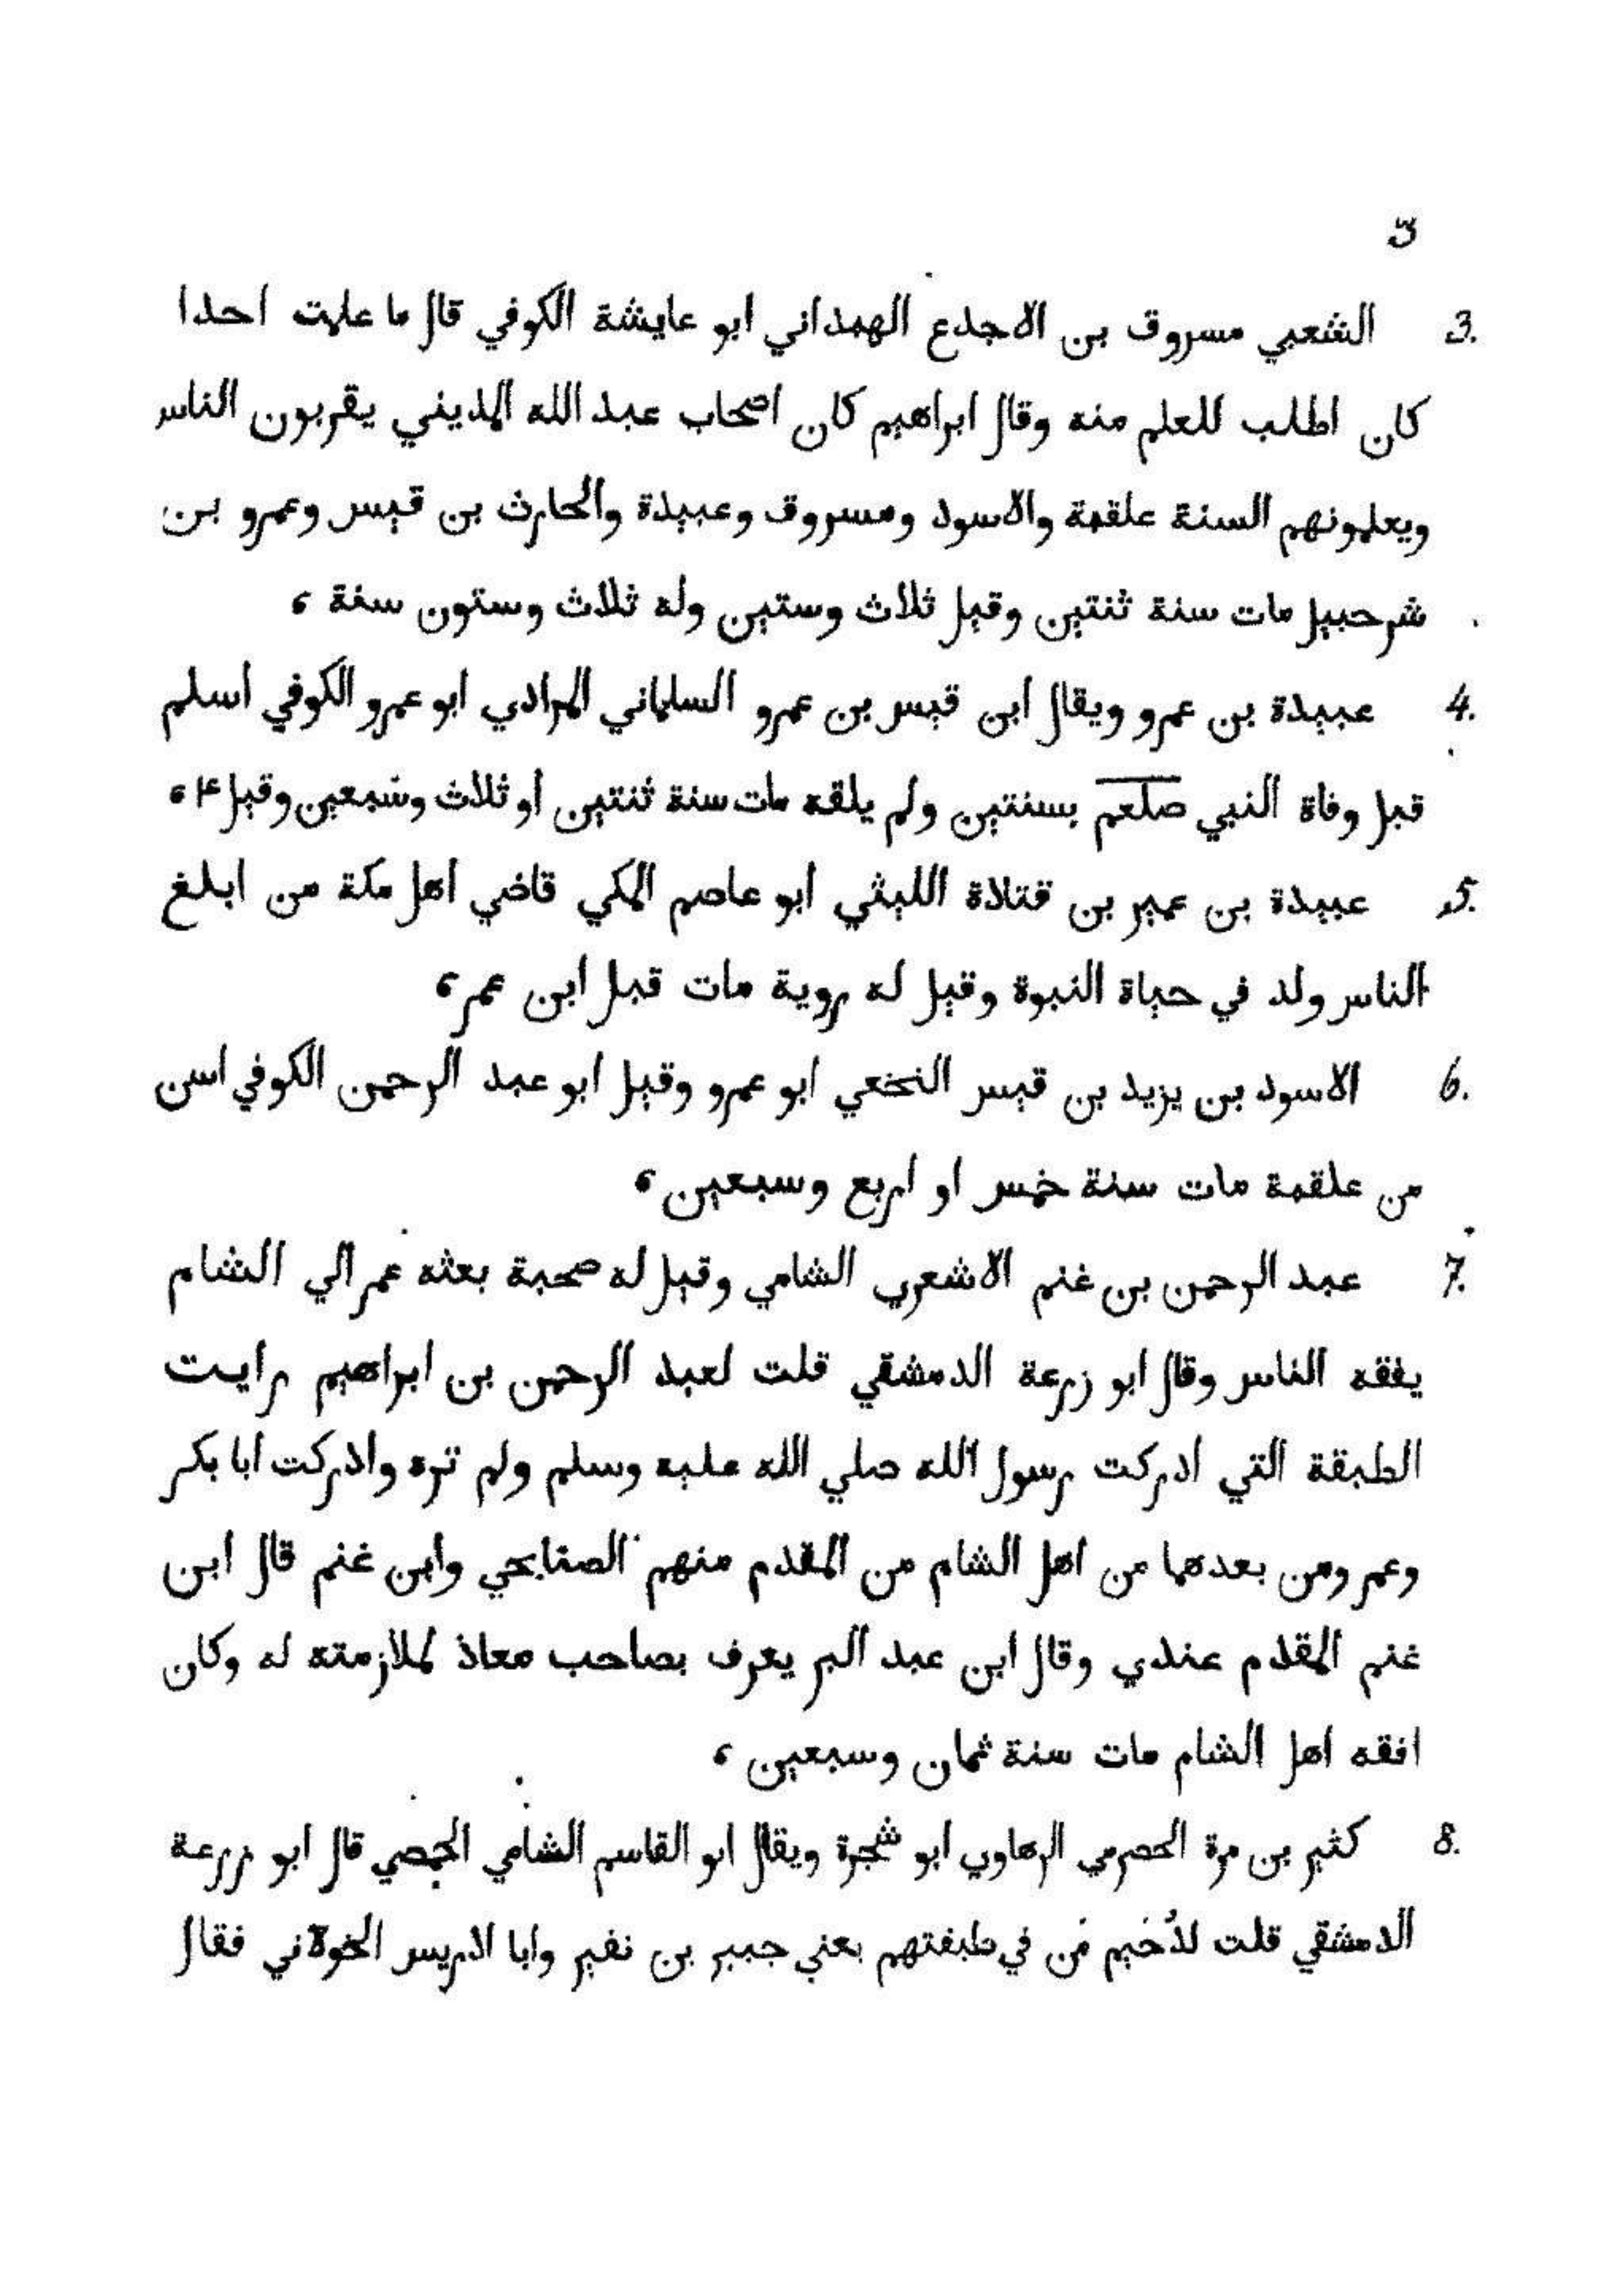 3
3. الشعبي مسروق بن الاجدع الهمداني ابو عايشة الكوفي قال ما علمت احدا
كان اطلب للعلم منه وقال ابراهيم كان اصحاب عبد الله المديني يقربون الناس
ويعلمونهم السنة علقمة والاسود ومسروق وعبيدة والحارث بن قيس وعمرو بن
شرحبيل مات سنة ثنتين وقيل ثلاث وستين وله ثلاث وستون سنة ،
4. عبيدة بن عمرو ويقال ابن قيس بن عمرو السلماني المرادي ابو عمرو الكوفي اسلم
قبل وفاة النبي صلعم بسنتين ولم يلقه مات سنة ثنتين او ثلاث وسبعين وقيل
5. عبيدة بن عمير بن قتلادة الليثي ابو عاصم المكي قاضي اهل مكة من ابلغ
الناس ولد في حياة النبوة وقيل له روية مات قبل ابن عمر ،
6. الاسود بن يزيد بن قيس النخعي ابو عمرو وقيل ابو عبد الرحمن الكوفي اسن
من علقمة مات سنة خمس او اربع وسبعين ،
7. عبد الرحمن بن غنم الاشعري الشامي وقيل له صحبة بعثه عمر الي الشام
يفقه الناس وقال ابو زرعة الدمشقي قلت لعبد الرحمن بن ابراهيم رايت
الطبقة التي ادركت رسول الله صلي الله عليه وسلم ولم تره وادركت ابا بكر
وعمر ومن بعدهما من اهل الشام من المقدم منهم الصنابحي وابن غنم قال ابن
غنم المقدم عندي وقال ابن عبد البر يعرف بصاحب معاذ لملازمته له وكان
افقه اهل الشام مات سنة ثمان وسبعين ،
8. كثير بن مرة الحصرمي الرهاوي ابو شجرة ويقال ابو القاسم الشامي الحمصي قال ابو زرعة
الدمشقي قلت من في طبفتهم يعني جبير بن نفير وابا ادريس الخولاني فقال